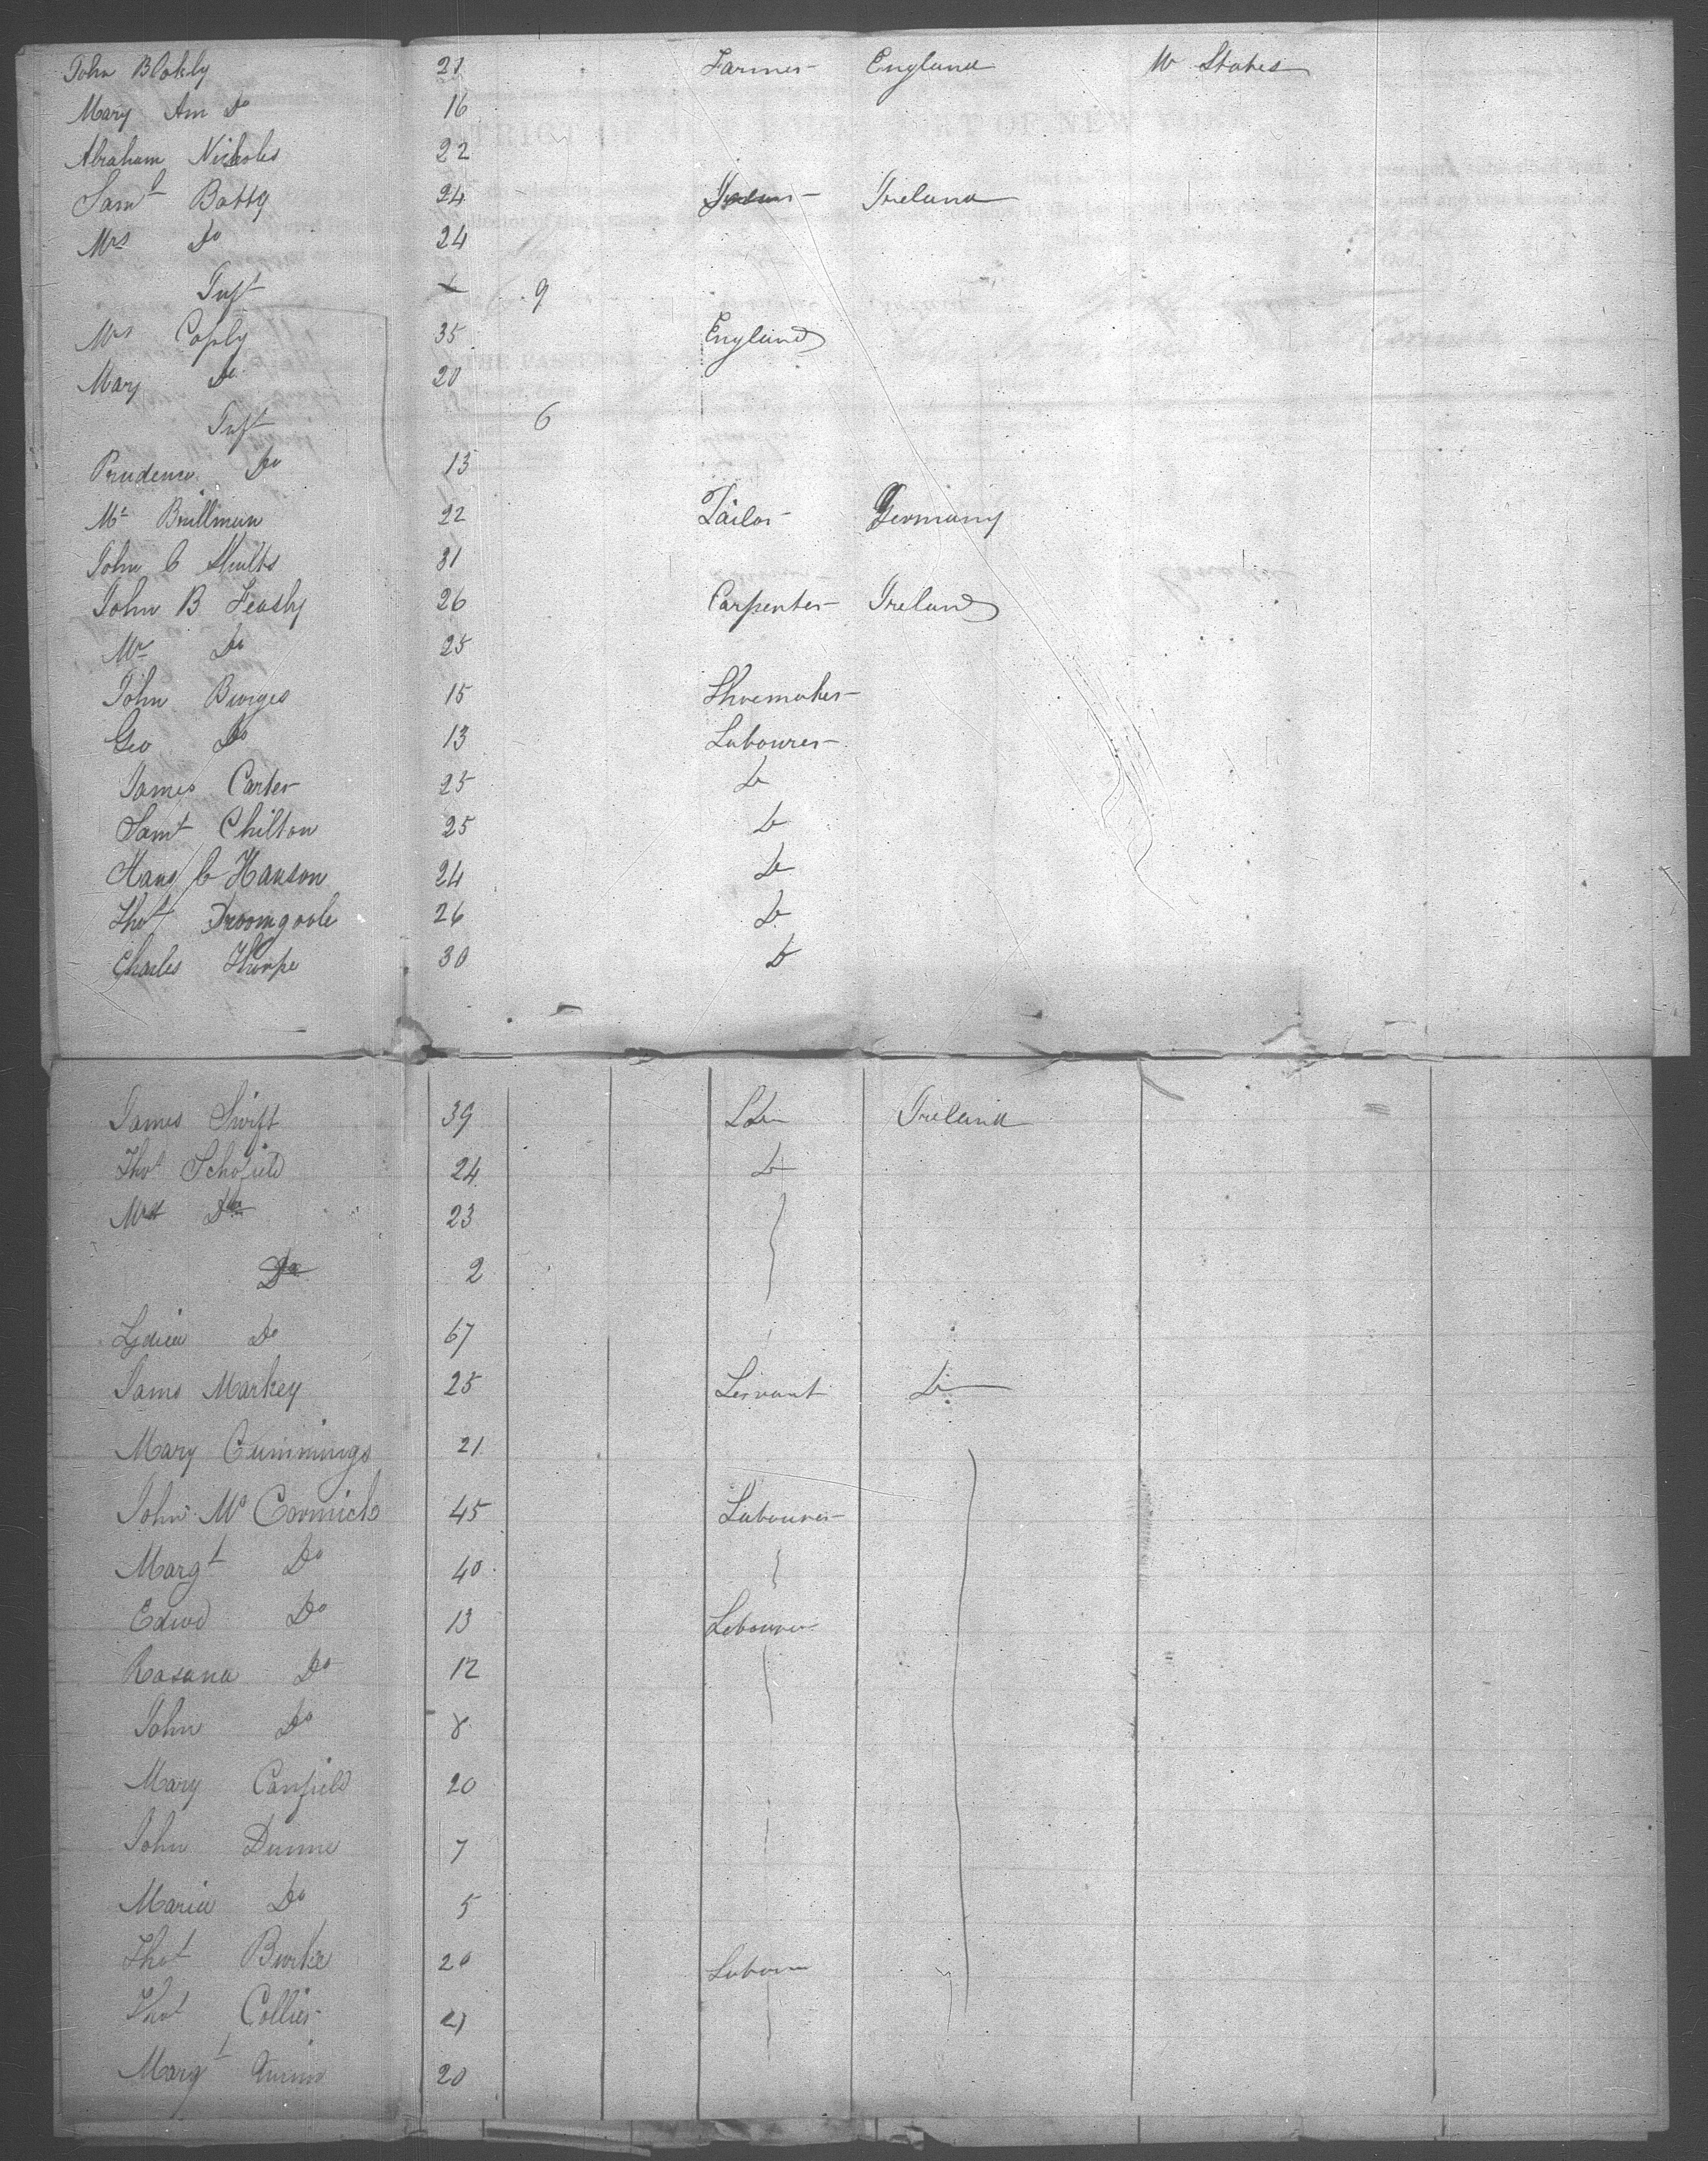 John Blakly 21 Farmer England U States
Mary Ann Do 16
Abraham Nicholes 22
Saml Batty 24 Ireland
Mrs Do 24
Inft 9
Mrs Coply 35 England
Mary Do 20
Inft 6
Prudence Do 13
Mr Brillman 22 Tailor Germany
John C Shults 31
John B Feashy 26 Carpenter Ireland
Mrs Do 25
John Burges 15 Shoemaker
Geo Do 13 Labourer
James Carter 25 Do
Saml Chilton 25 Do
Hans C Hanson 24 Do
Thos Droomgoole 26 Do
Charles Thorpe 30 Do
James Swift 39 Labr Ireland
Thos Schofield 24 Do
Mrs Do 23
Do 2
Lydia Do 67
James Markey 25 Servant Do
Mary Cummings 21
John Mc Cormick 45 Labourer
Margt Do 40
Edwd Do 13 Labourer
Rosana Do 12
John Do 8
Mary Canfield 20
John Dunne 7
Maria Do 5
Thos Burke 20 Labour
Thos Collier 21
Margt Quinn 20